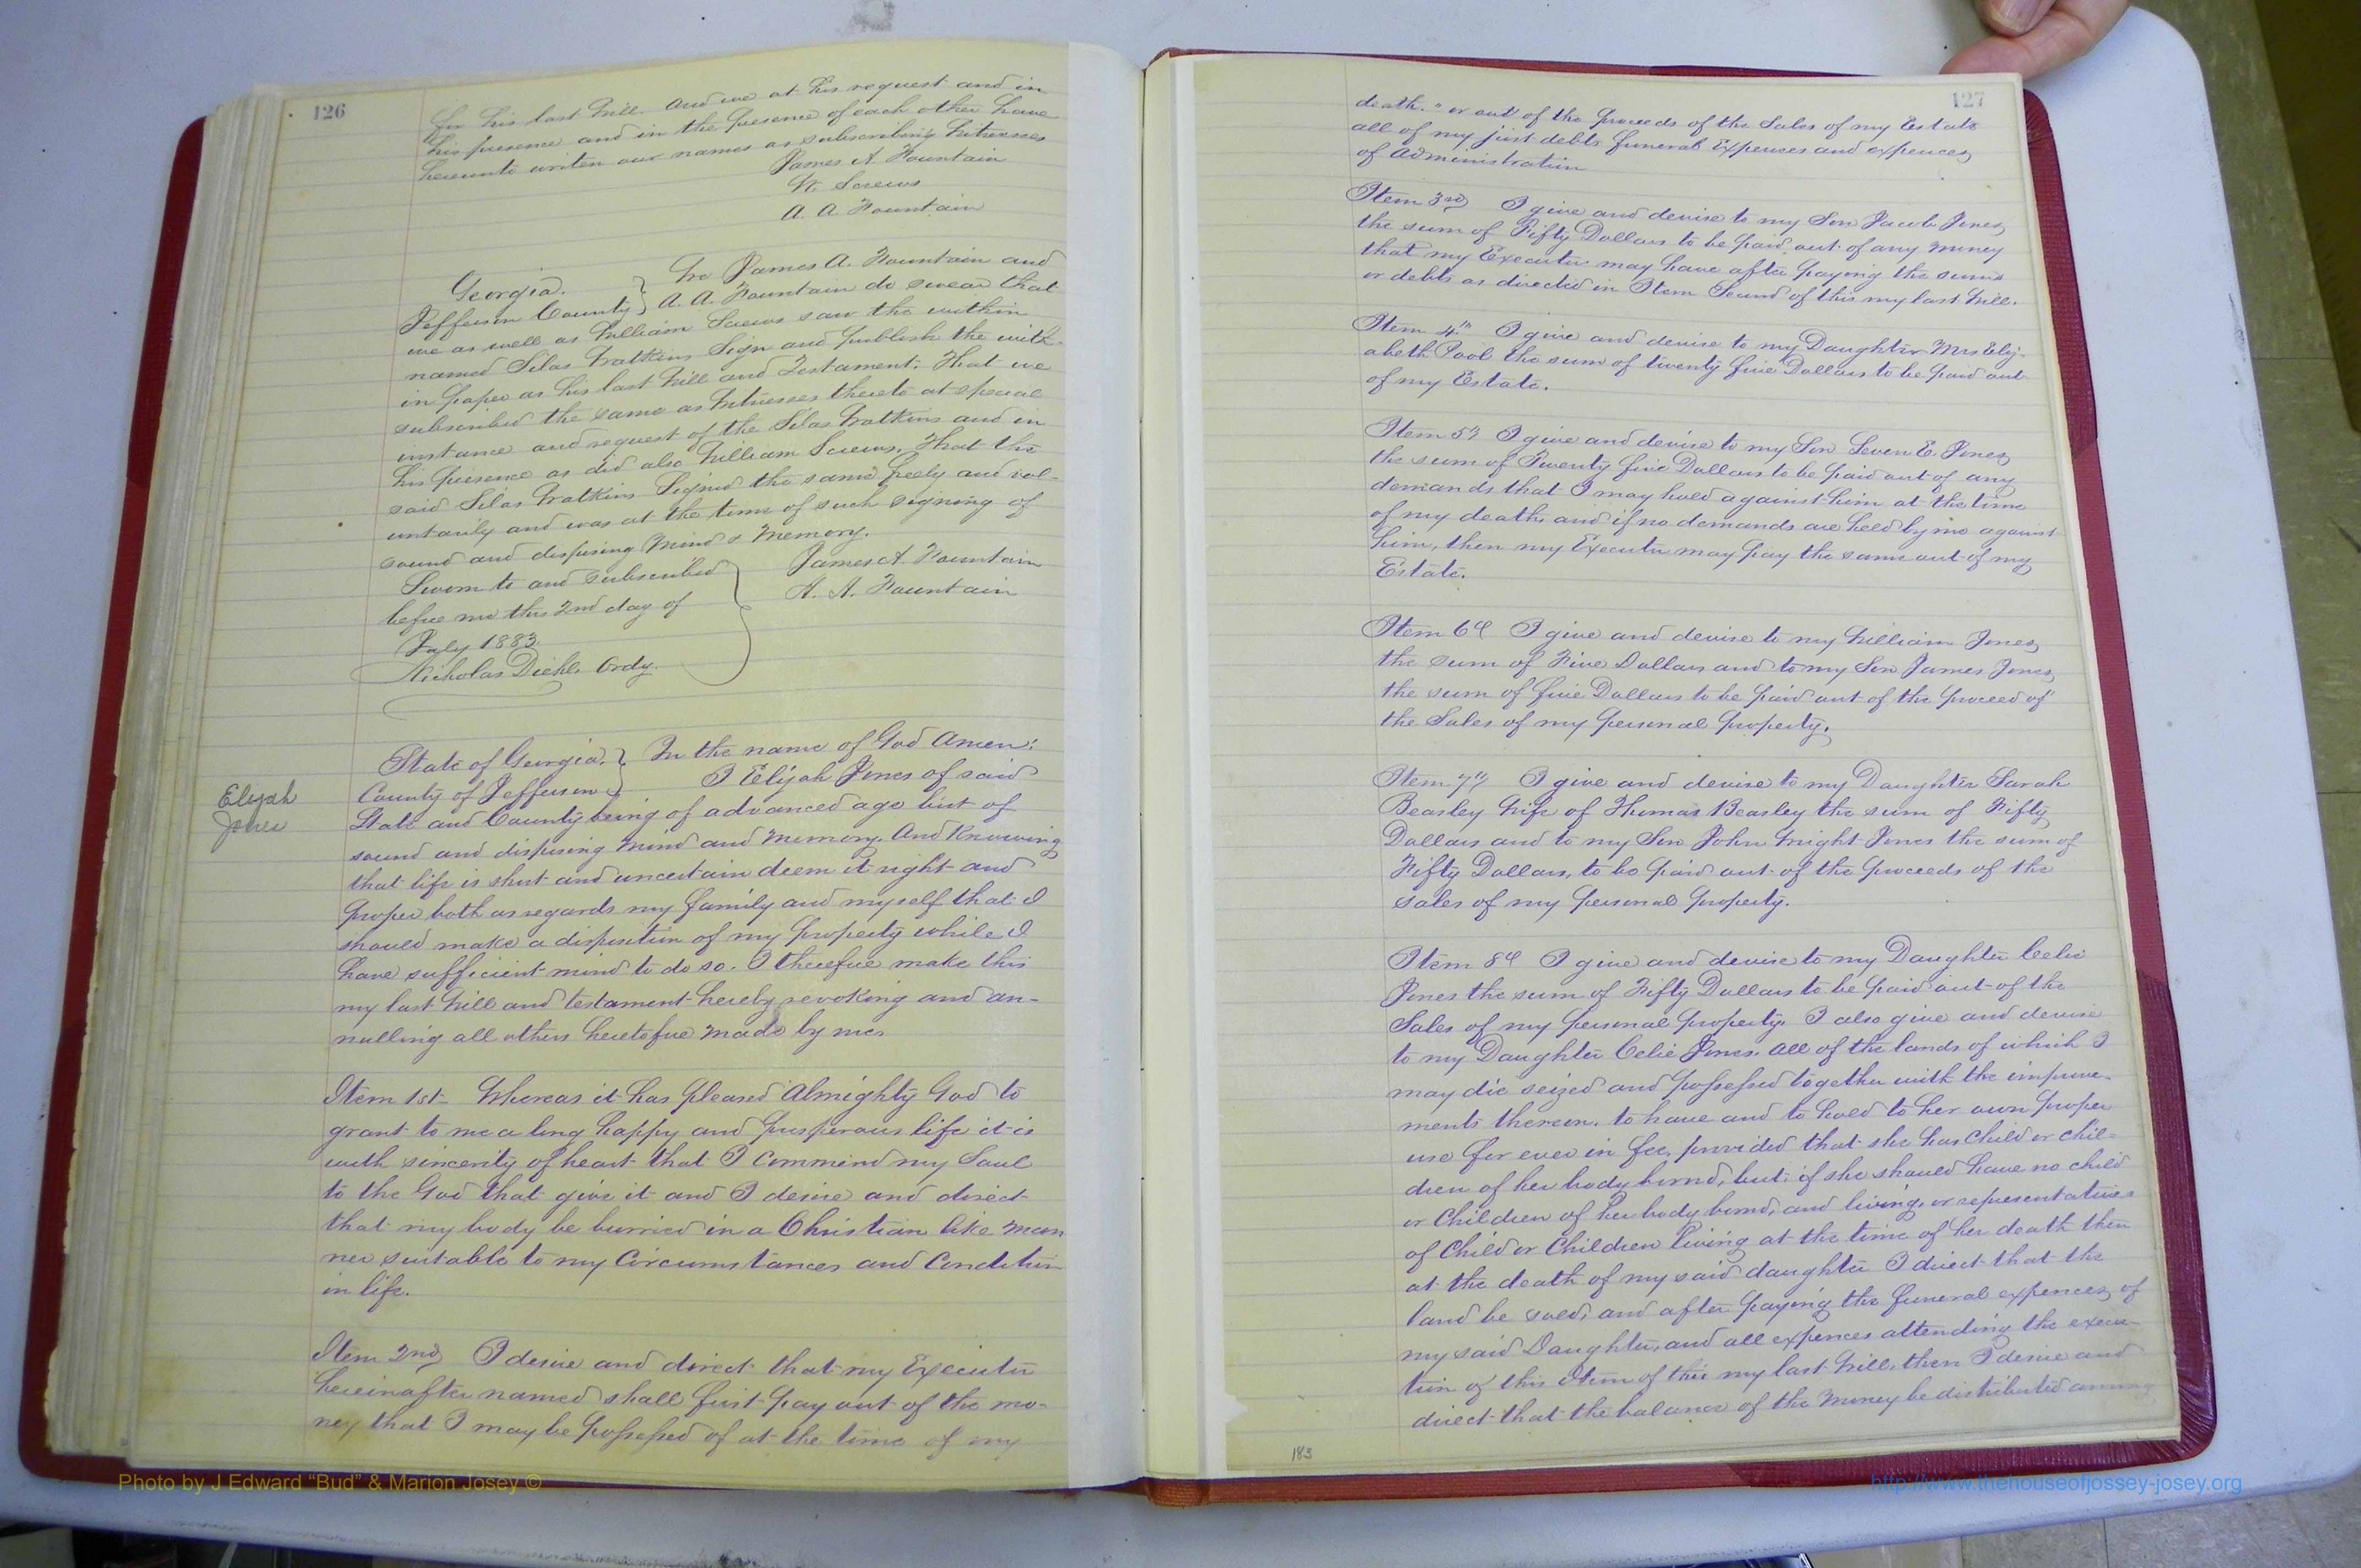 126
for his last Will. And we at his request and in
his presence and in the presence of each other have
hereunto writen our names as subscribing Witnesses
James A. Fountain
W. Screws
A. A. Fountain
Georgia. } We James A. Fountain and
Jefferson County } A. A. Fountain do swear that
we as well as William Screws saw the within
named Silas Watkins Sign and publish the with-
in paper as his last Will and Testament. That we
subscribed the same as Witnesses thereto at special
instance and request of the Silas Watkins and in
his presence as did also William Screws. That the
said Silas Watkins Signed the same freely and vol-
untarily and was at the time of such signing of
sound and disposing Mind & Memory.
Sworn to and subscribed } James A. Fountain
before me this 2nd day of } A. A. Fountain
July 1883.
Nicholas Diehl. Ordy.
Elijah
Jones
State of Georgia. } In the name of God Amen:
County of Jefferson } I Elijah Jones of said
State and County being of advanced age but of
sound and disposing Mind and Memory. And Knowing
that life is short and uncertain deem it right and
proper both as regards my family and myself that I
should make a disposition of my property while I
have sufficient mind to do so. I therefore make this
my last Will and testament hereby revoking and an-
nulling all others heretofore made by me.
Item 1st Whereas it has pleased Almighty God to
grant to me a long happy and prosperous life it is
with sincerity of heart that I commend my Soul
to the God that give it and I desire and direct
that my body be burried in a Christian like man
ner suitable to my Circumstances and Condition
in life.
Item 2nd I desire and direct that my Executor
hereinafter named shall first pay out of the mo-
ney that I may be possessed of at the time of my
127
death. or out of the proceeds of the Sales of my Estate
all of my just debts funeral Expences and expences
of Administration
Item 3rd I give and devise to my Son Jacob Jones
the sum of Fifty Dollars to be paid out of any money
that my Executor may have after paying the sums
or debts as directed in Item Second of this my last Will.
Item 4th I give and devise to my Daughter Mrs Eliz-
abeth Pool the sum of twenty five Dollars to be paid out
of my Estate.
Item 5th I give and devise to my Son Seven E. Jones
the sum of Twenty five Dollars to be paid out of any
demands that I may hold against him at the time
of my death, and if no demands are held by me against
him, then my Executor may pay the same out of my
Estate.
Item 6th I give and devise to my William Jones
the sum of Five Dollars and to my Son James Jones
the sum of five Dollars to be paid out of the proceed of
the Sales of my personal property.
Item 7th I give and devise to my Daughter Sarah
Beasley Wife of Thomas Beasley the sum of Fifty
Dollars and to my Son John Wright Jones the sum of
Fifty Dollars, to be paid out of the proceeds of the
sales of my personal property.
Item 8th I give and devise to my Daughter Celie
Jones the sum of Fifty Dollars to be paid out of the
Sales of my personal property. I also give and devise
to my Daughter Celie Jones. all of the lands of which I
may die seized and possessed together with the improve-
ments thereon. to have and to hold to her own proper
use for ever in fee, provided that she has child or chil-
dren of her body bornd, but if she should have no child
or Children of her body bornd, and living, or representatives
of Child or Children living at the time of her death then
at the death of my said daughter I direct that the
land be sold, and after paying the funeral expences of
my said Daughter, and all expences attending the execu-
tion of this Item of this my last Will, then I desire and
direct that the balance of the Money be distributed among
183
Photo by J Edward “Bud” & Marion Josey ©
http://www.thehouseofjossey-josey.org